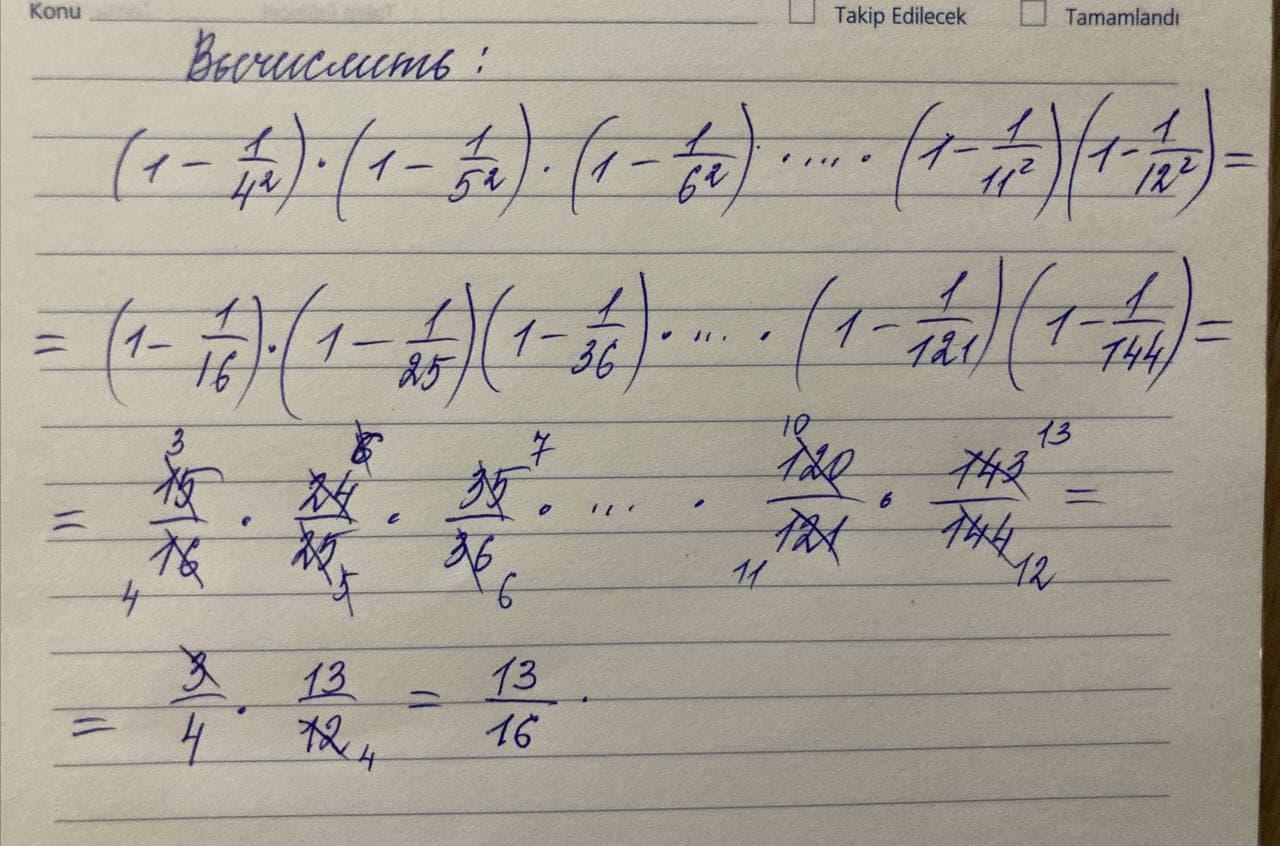 Konu Takip Edilecek Tamamlandı
Вычислить:
(1 - 1/4²) · (1 - 1/5²) · (1 - 1/6²) · .... · (1 - 1/11²)(1 - 1/12²) =
= (1 - 1/16) · (1 - 1/25)(1 - 1/36) · ... · (1 - 1/121)(1 - 1/144) =
3 6 7 10 13
= 15/16 · 24/25 · 35/36 · ... · 120/121 · 143/144 =
4 5 6 11 12
= 3/4 · 13/12 = 13/16 .
4